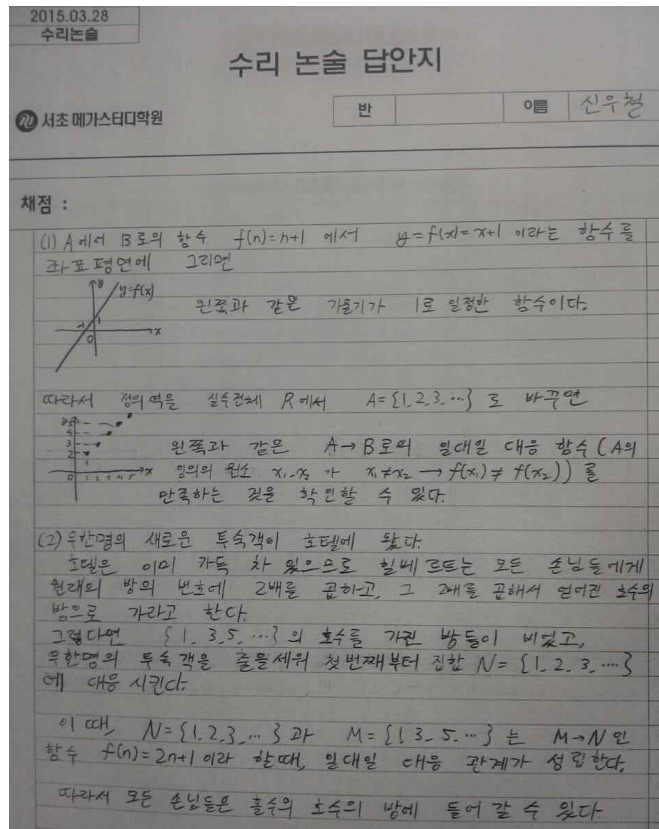 2015.03.28
수리논술
수리 논술 답안지
서초 메가스터디학원
반
이름 신우철
채점 :
(1) A에서 B로의 함수 f(n)=n+1 에서 y=f(x)=x+1 이라는 함수를
좌표평면에 그리면
y
y=f(x)
1
-1
0
x
왼쪽과 같은 기울기가 1로 일정한 함수이다.
따라서 정의역을 실수전체 R에서 A={1,2,3,…} 로 바꾸면
y
5
4
3
2
1
0 1 2 3 4 5 x
왼쪽과 같은 A→B로의 일대일 대응 함수 (A의
임의의 원소 x₁, x₂ 가 x₁≠x₂ → f(x₁)≠ f(x₂)) 를
만족하는 것을 확인할 수 있다.
(2) 무한명의 새로운 투숙객이 호텔에 왔다.
호텔은 이미 가득 차 있으므로 힐베르트는 모든 손님들에게
원래의 방의 번호에 2배를 곱하고, 그 2배를 곱해서 얻어진 호수의
방으로 가라고 한다.
그렇다면 {1, 3, 5, …} 의 호수를 가진 방들이 비었고,
무한명의 투숙객을 줄을세워 첫번째부터 집합 N= {1, 2, 3, …}
에 대응 시킨다.
이 때, N={1,2,3,…} 과 M={1,3,5,…} 는 M→N 인
함수 f(n)=2n+1 이라 할때, 일대일 대응 관계가 성립한다.
따라서 모든 손님들은 홀수의 호수의 방에 들어 갈 수 있다.